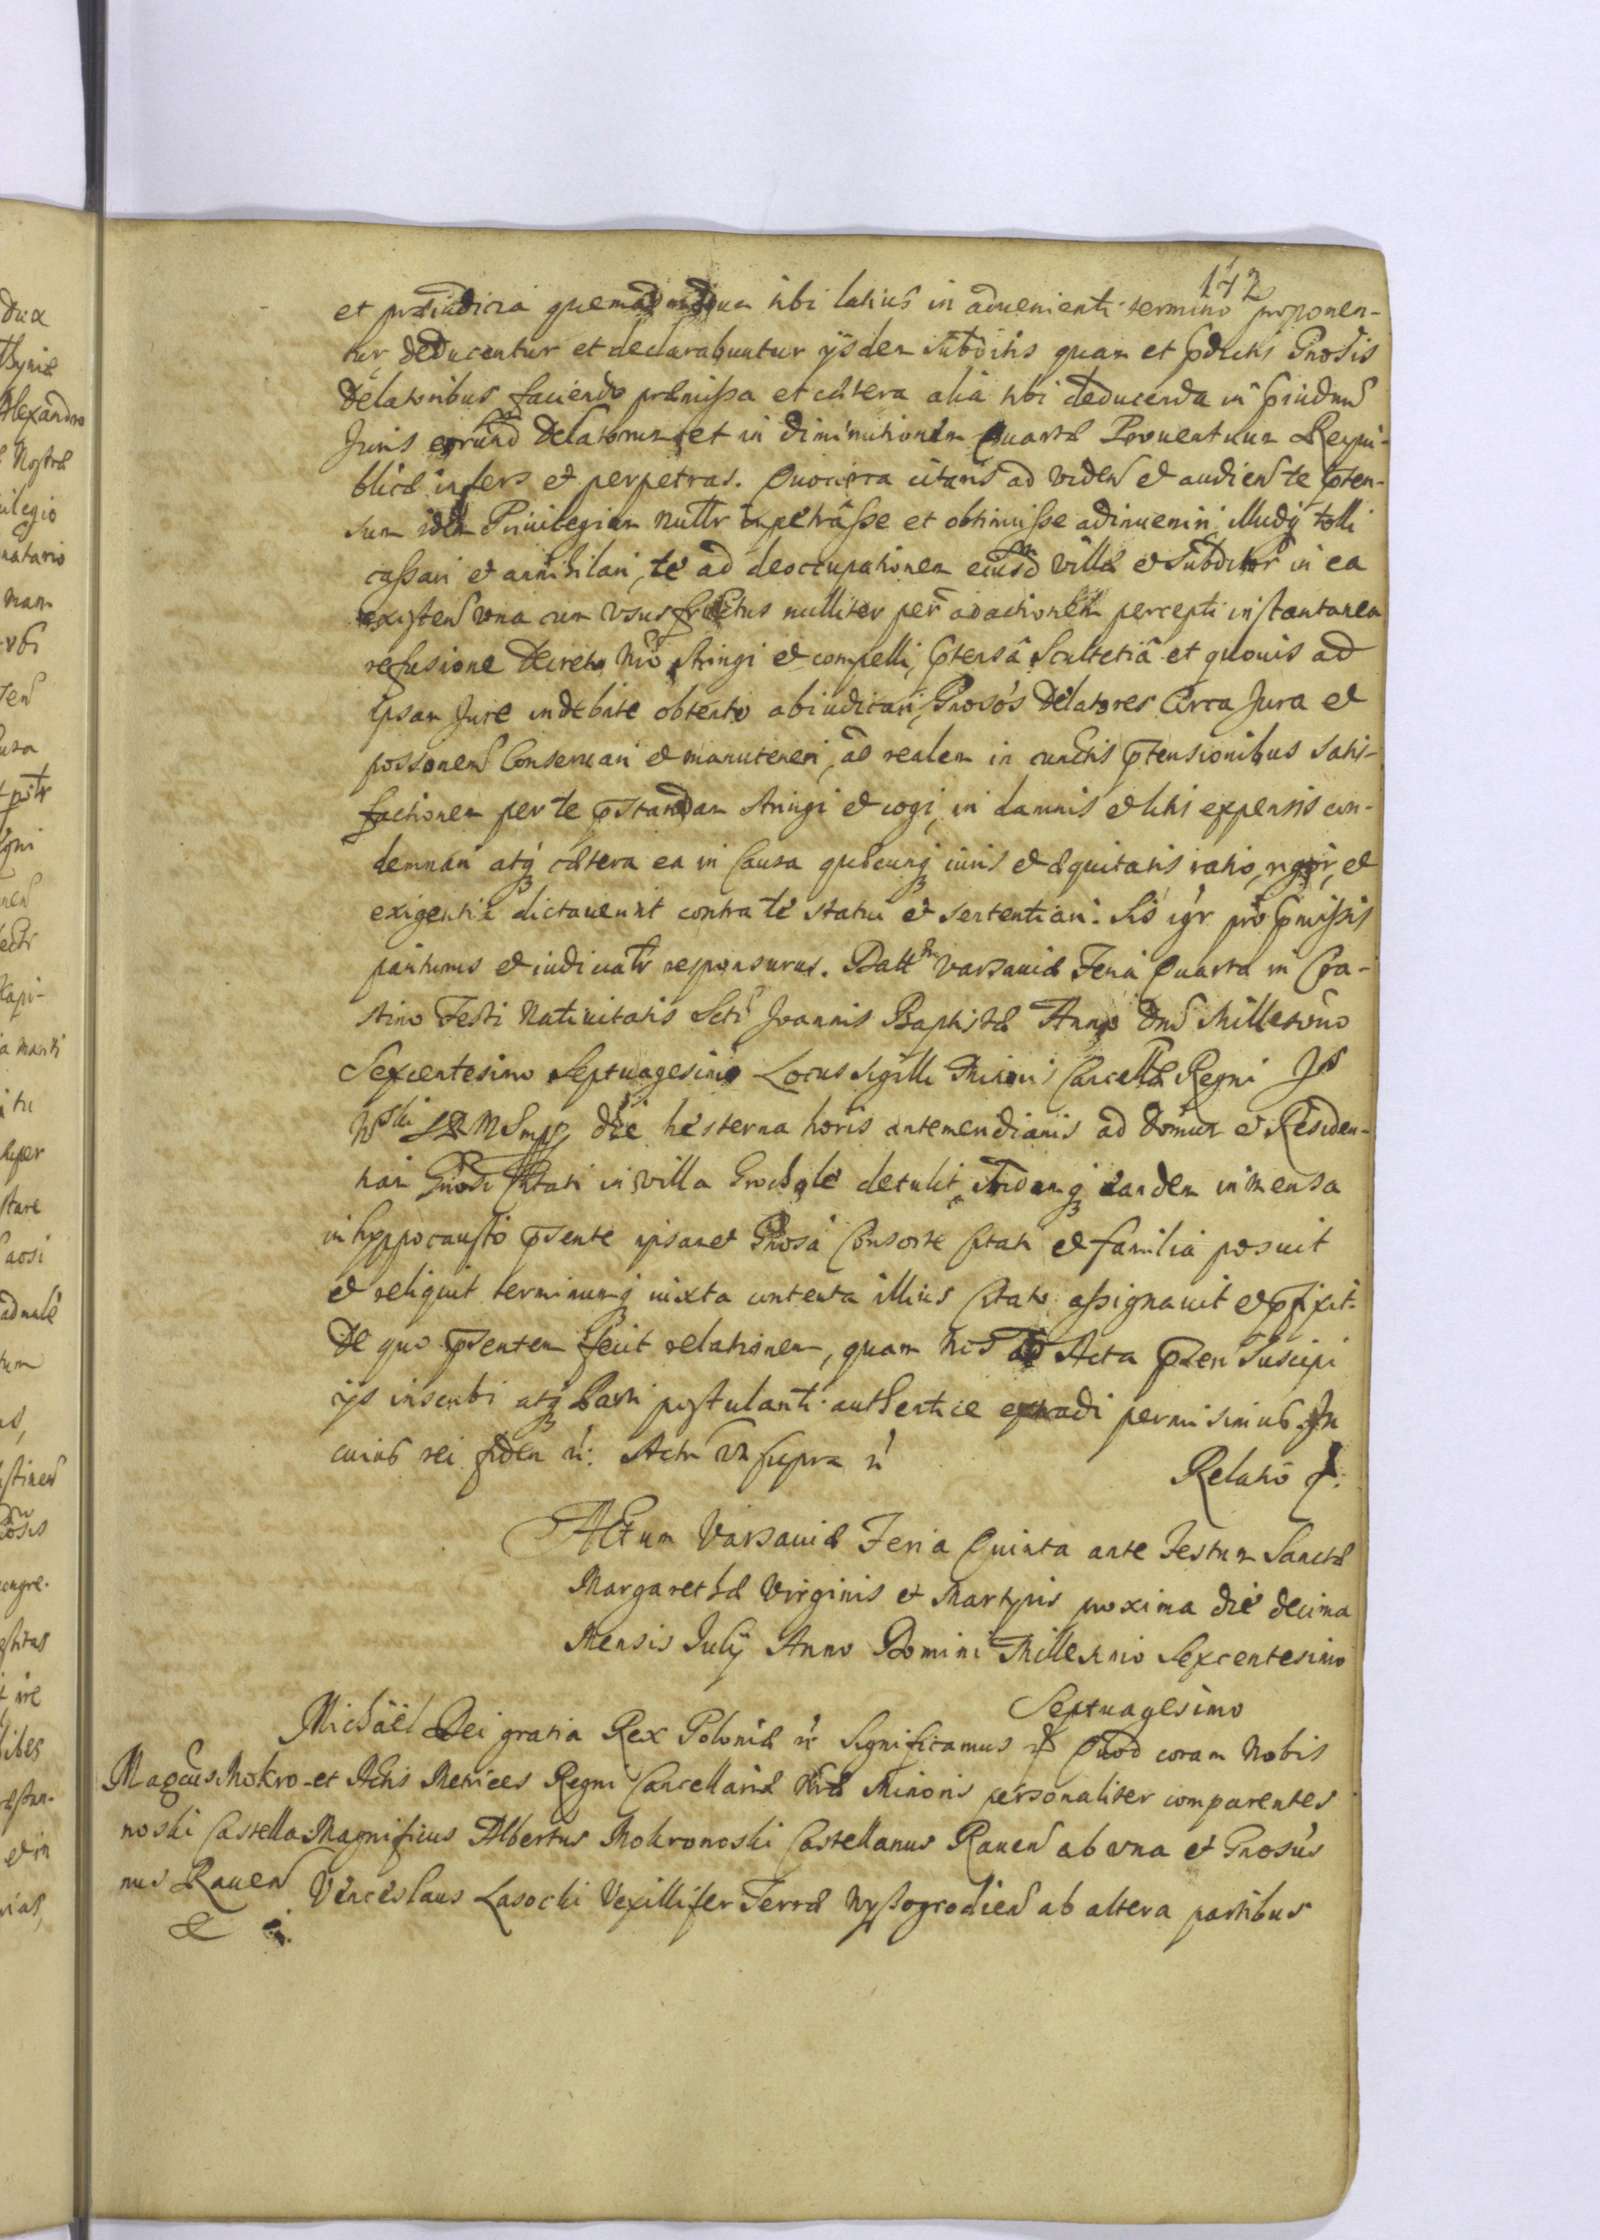 142
et præiudicia quemadmodum tibi latius in advenienti termino proponen-
tur, deducentur et declarabuntur ijsdem subditis quam et pdictis Gnosis
Delatoribus faciendo præmissa et cætera alia tibi deducenda in
Juris eorund Delatorum et in diminutionem Quartæ Proventuum Reipu-
blicæ infers et perpetras. Quocirca citaris ad viden et audien te pten-
sum idem Privilegium nullr impetrasse et obtinuisse adinveniri illudq tolli
cassari et annihilari, te ad deoccupationem eiusd villæ et subditor in ea
existen una cum usus fructus nulliter per adactionem percepti instantanea
refusione Decreto Nro stringi et compelli, ptensa Scultetia et quovis ad
ipsam Jure indebite obtento abiudicari, Gnosos Delatores Circa Jura et
possonem Conservari et manuteneri, ad realem in cunctis ptensionibus satis-
factionem per te pstandam stringi et cogi, in damnis et litis expensis con-
demnari atq cætera ea in Causa quæcunq iuris et æquitatis ratio, rigor, et
exigentia dictaverint contra te statui et sententiari. Sis igr pro pmissis
pariturus et iudicialr responsurus. Datt Varsaviæ Feria Quarta in Cra-
stino Festi Nativitatis Scti Joannis Baptistæ Anno Dni Millesimo
Sexcentesimo Septuagesimo Locus Sigilli Minoris Cancellæ Regni
die hesterna horis antemeridianis ad domum et Residen-
tiam Gnosi Citati in villa Grochole detulit, ibidemq eandem in mensa
in hyppocausto psente ipsamet Gnosa Consorte Citati et familia posuit
et reliquit terminumq iuxta contenta illius Citato assignavit et pfixit.
De quo psentem fecit relationem, quam Nos ad Acta psen suscipi
ijs inscribi atq Parti postulanti authentice extradi permisimus. In
cuius rei fidem Actu ut supra
Relatio
Actum Varsaviæ Feria Quinta ante Festum Sanctæ
Margarethæ Virginis et Martyris proxima die decima
Mensis Julij Anno Domini Millesimo Sexcentesimo
Septuagesimo
Michaël Dei gratia Rex Poloniæ Significamus Quod coram Nobis
et Actis Metrices Regni Cancellariæ Nræ Minoris personaliter comparentes
Magnificus Albertus Mokronoski Castellanus Raven ab una et Gnosus
Venceslaus Lasocki Vexillifer Terræ Wyssogrodien ab altera partibus
Magcus Mokro-
noski Castella-
nus Raven